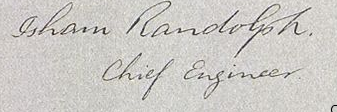 Isham Randolph.
Chief Engineer.